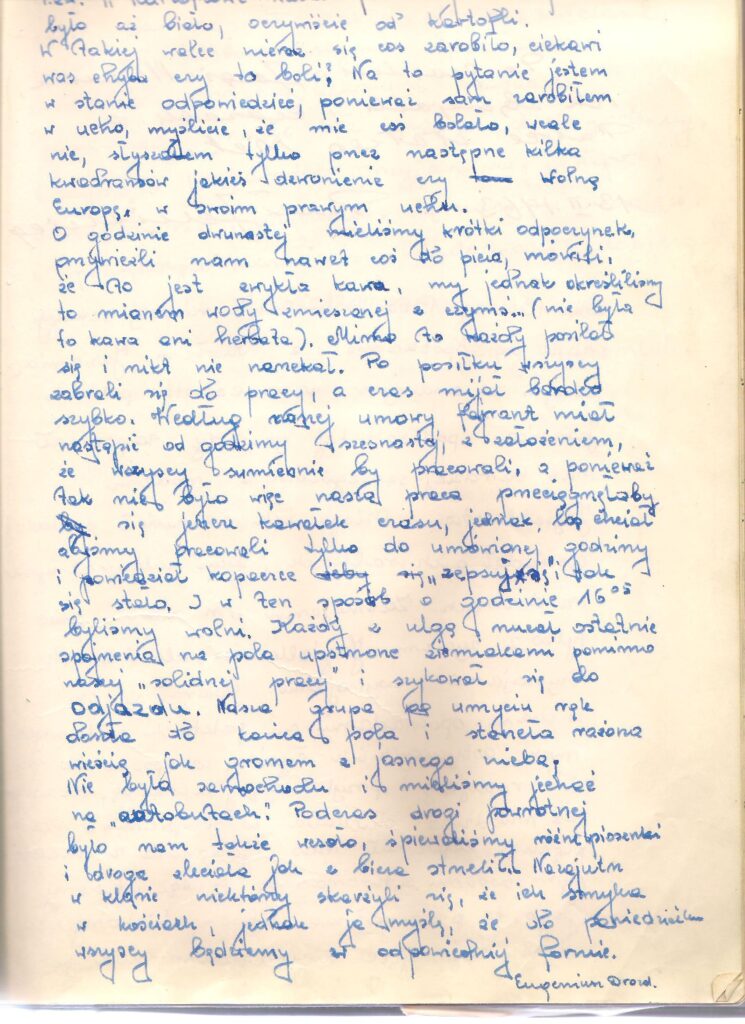 było aż biało, oczywiście od kartofli.
W takiej walce nieraz się coś zarobiło, ciekawi
was chyba czy to boli? Na to pytanie jestem
w stanie odpowiedzieć, ponieważ sam zarobiłem
w ucho, myślicie, że mie coś bolało, wcale
nie, słyszałem tylko przez następne kilka
kwadransów jakieś dzwonienie czy Wolną
Europę, w swoim prawym uchu.
O godzinie dwunastej mieliśmy krótki odpoczynek,
przywieźli nam nawet coś do picia, mówili,
że to jest zwykła kawa, my jednak określiliśmy
to mianem wody zmieszanej z czymś... (nie była
to kawa ani herbata). Mimo to każdy posilał
się i nikt nie narzekał. Po posiłku wszyscy
zabrali się do pracy, a czas mijał bardzo
szybko. Według umowy fajrant miał
nastąpić od godzimy szesnastej, z założeniem,
że wszyscy sumiennie by pracowali, a ponieważ
tak nie było więc nasza praca przeciągnęłaby
się jeszcze kawałek czasu, jednak los chciał
abyśmy pracowali tylko do umówionej godzimy
i powiedział kopaczce "zepsuj się" i tak
się stało. I w ten sposób o godzinie 16⁰⁵
byliśmy wolni. Każdy z ulgą rzucał ostatnie
spojrzenia na pola upstrzone ziemniakami pomimo
naszej "solidnej pracy" i szykował się do
odjazdu. Nasza grupa po umyciu rąk
doszła do końca pola i stanęła rażona
wieścią jak gromem z jasnego nieba.
Nie było samochodu i mieliśmy jechać
na "autobutach". Podczas drogi powrotnej
było nam także wesoło, śpiewaliśmy różne piosenki
i droga zleciała jak z bicza strzelił. Nazajutrz
w klasie niektórzy skarżyli się, że ich strzyka
w kościach, jednak ja myślę, że do poniedziałku
wszyscy będziemy w odpowiedniej formie.
Eugeniusz Drozd.